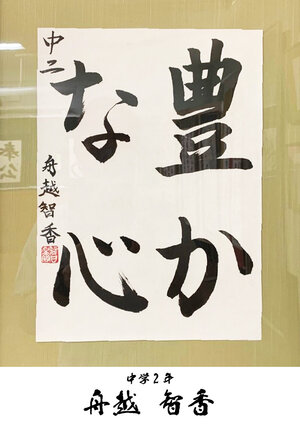 豊か
な心
中二 舟越智香
中学2年
舟越 智香